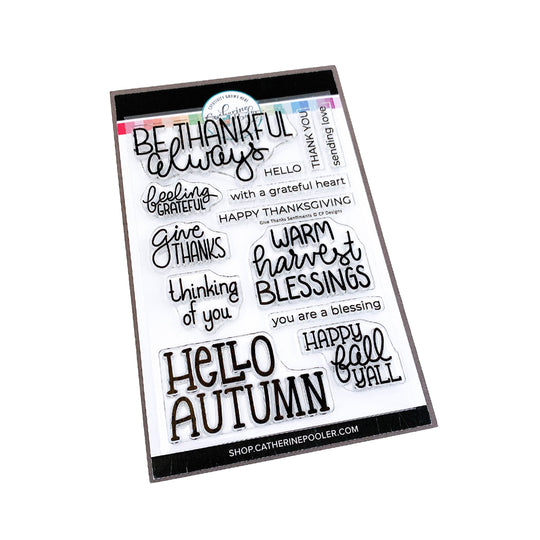 Catherine
BE THANKFUL
always
THANK YOU
sending love
HELLO
feeling
GRATEFUL
with a grateful heart
HAPPY THANKSGIVING
Give Thanks Sentiments © CP Designs
give
THANKS
WARM
harvest
BLESSINGS
thinking
of you
you are a blessing
HAPPY
fall
Y'ALL
HELLO
AUTUMN
SHOP.CATHERINEPOOLER.COM